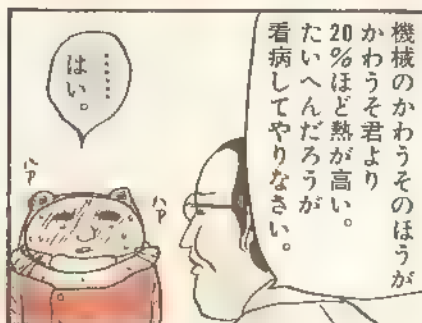 機械のかわうそのほうが
かわうそ君より
20%ほど熱が高い。
たいへんだろうが
看病してやりなさい。
………
はい。
ハァ
ハァ